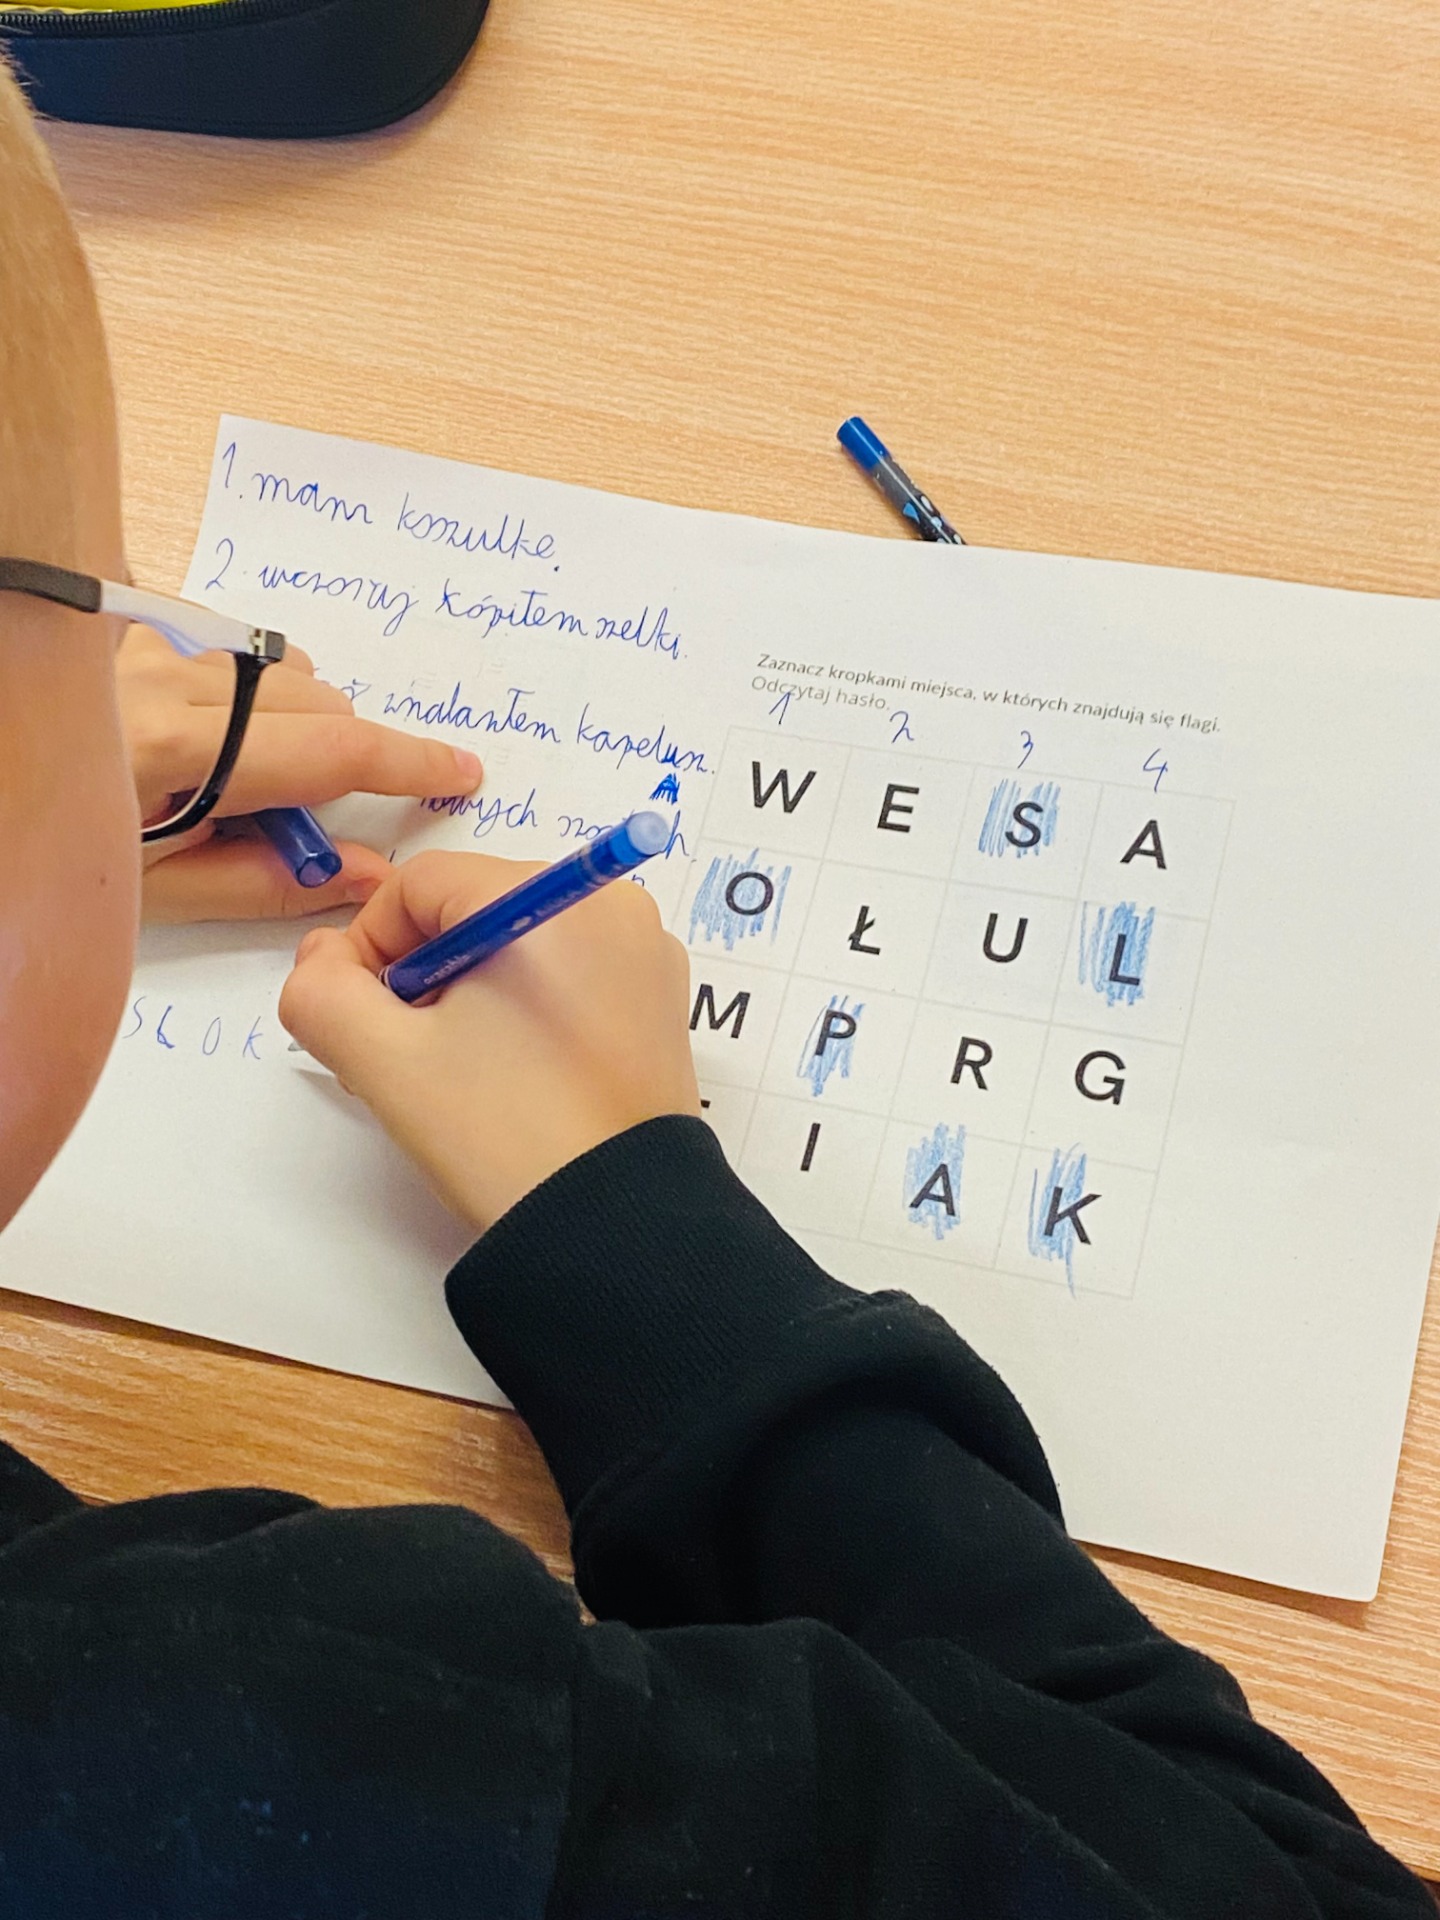 1. mam koszulkę.
2. wczoraj kópiłem szelki.
znalazłem kapelusz.
nowych
S O K
Zaznacz kropkami miejsca, w których znajdują się flagi.
Odczytaj hasło.
1 2 3 4
W E S A
O Ł U L
M P R G
I A K